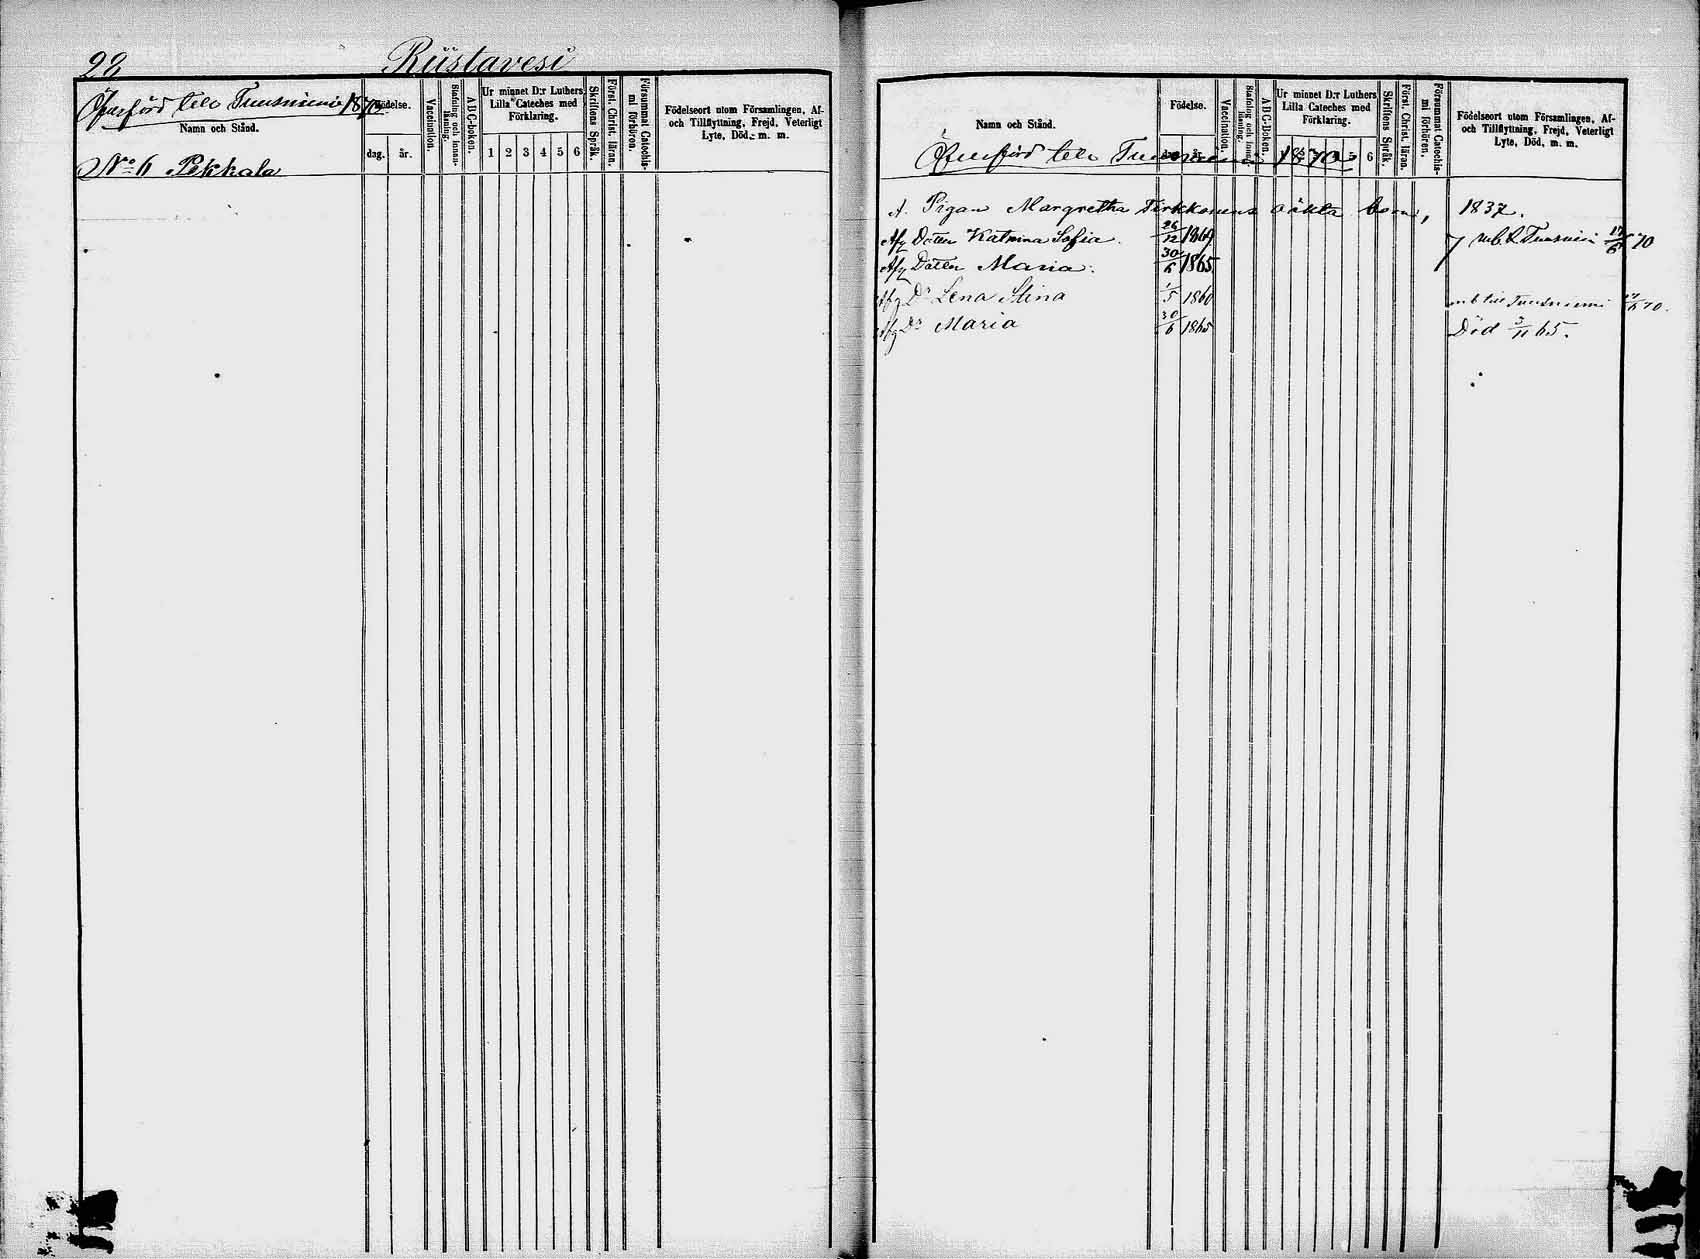 22
Riistavesi
Öfverförd till Tuusniemi 1870
Namn och Stånd.
Födelse.
dag. år.
Vaccination.
Stafning och innan-läsning.
ABC-boken.
Ur minnet D:r Luthers Lilla Cateches med Förklaring.
1 2 3 4 5 6
Skriftens Språk.
Först. Christ. läran.
Försummat Catechis-mi förhören.
Födelseort utom Församlingen, Af-
och Tillflyttning, Frejd, Veterligt
Lyte, Död, m. m.
No 6 Pekkala
Namn och Stånd.
Födelse.
Vaccination.
Stafning och innan-läsning.
ABC-Boken.
Ur minnet D:r Luthers
Lilla Cateches med
Förklaring.
6
Skriftens Språk.
Först. Christ. läran.
Försummat Catechis-mi förhören.
Födelseort utom Församlingen, Af-
och Tillflyttning, Frejd, Veterligt
Lyte, Död, m. m.
Öfverförd till Tuusniemi 1870
A. Pigan Margretha Tirkkonens oäkta barn, 1837.
Afg Dotter Katrina Sofia. 26/12 1869 m.b. t. Tuusniemi 17/6 70
Afg Dotter Maria. 30/6 1865
Afg Dr Lena Stina 1/5 1860 m b till Tuusniemi 17/6 70.
Afg Dr Maria 30/6 1865 Död 3/11 65.